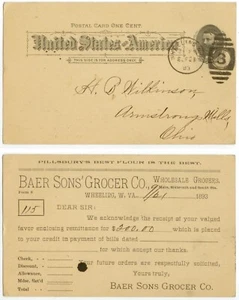 POSTAL CARD ONE CENT.
United States of America
THIS SIDE IS FOR ADDRESS ONLY.
H. P. Wilkinson,
Armstrong Mills,
Ohio
PILLSBURY'S BEST FLOUR IS THE BEST.
BAER SONS' GROCER CO., WHOLESALE GROCERS,
WHEELING, W. VA. 189
115
DEAR SIR:
We acknowledge the receipt of your valued
favor enclosing remittance for $200.00 which is placed
to your credit in payment of bills dated
for which accept our thanks.
Check, Your future orders are respectfully solicited.
Discount, Yours truly,
Allowance,
Mdse. Ret'd, BAER SONS GROCER CO.